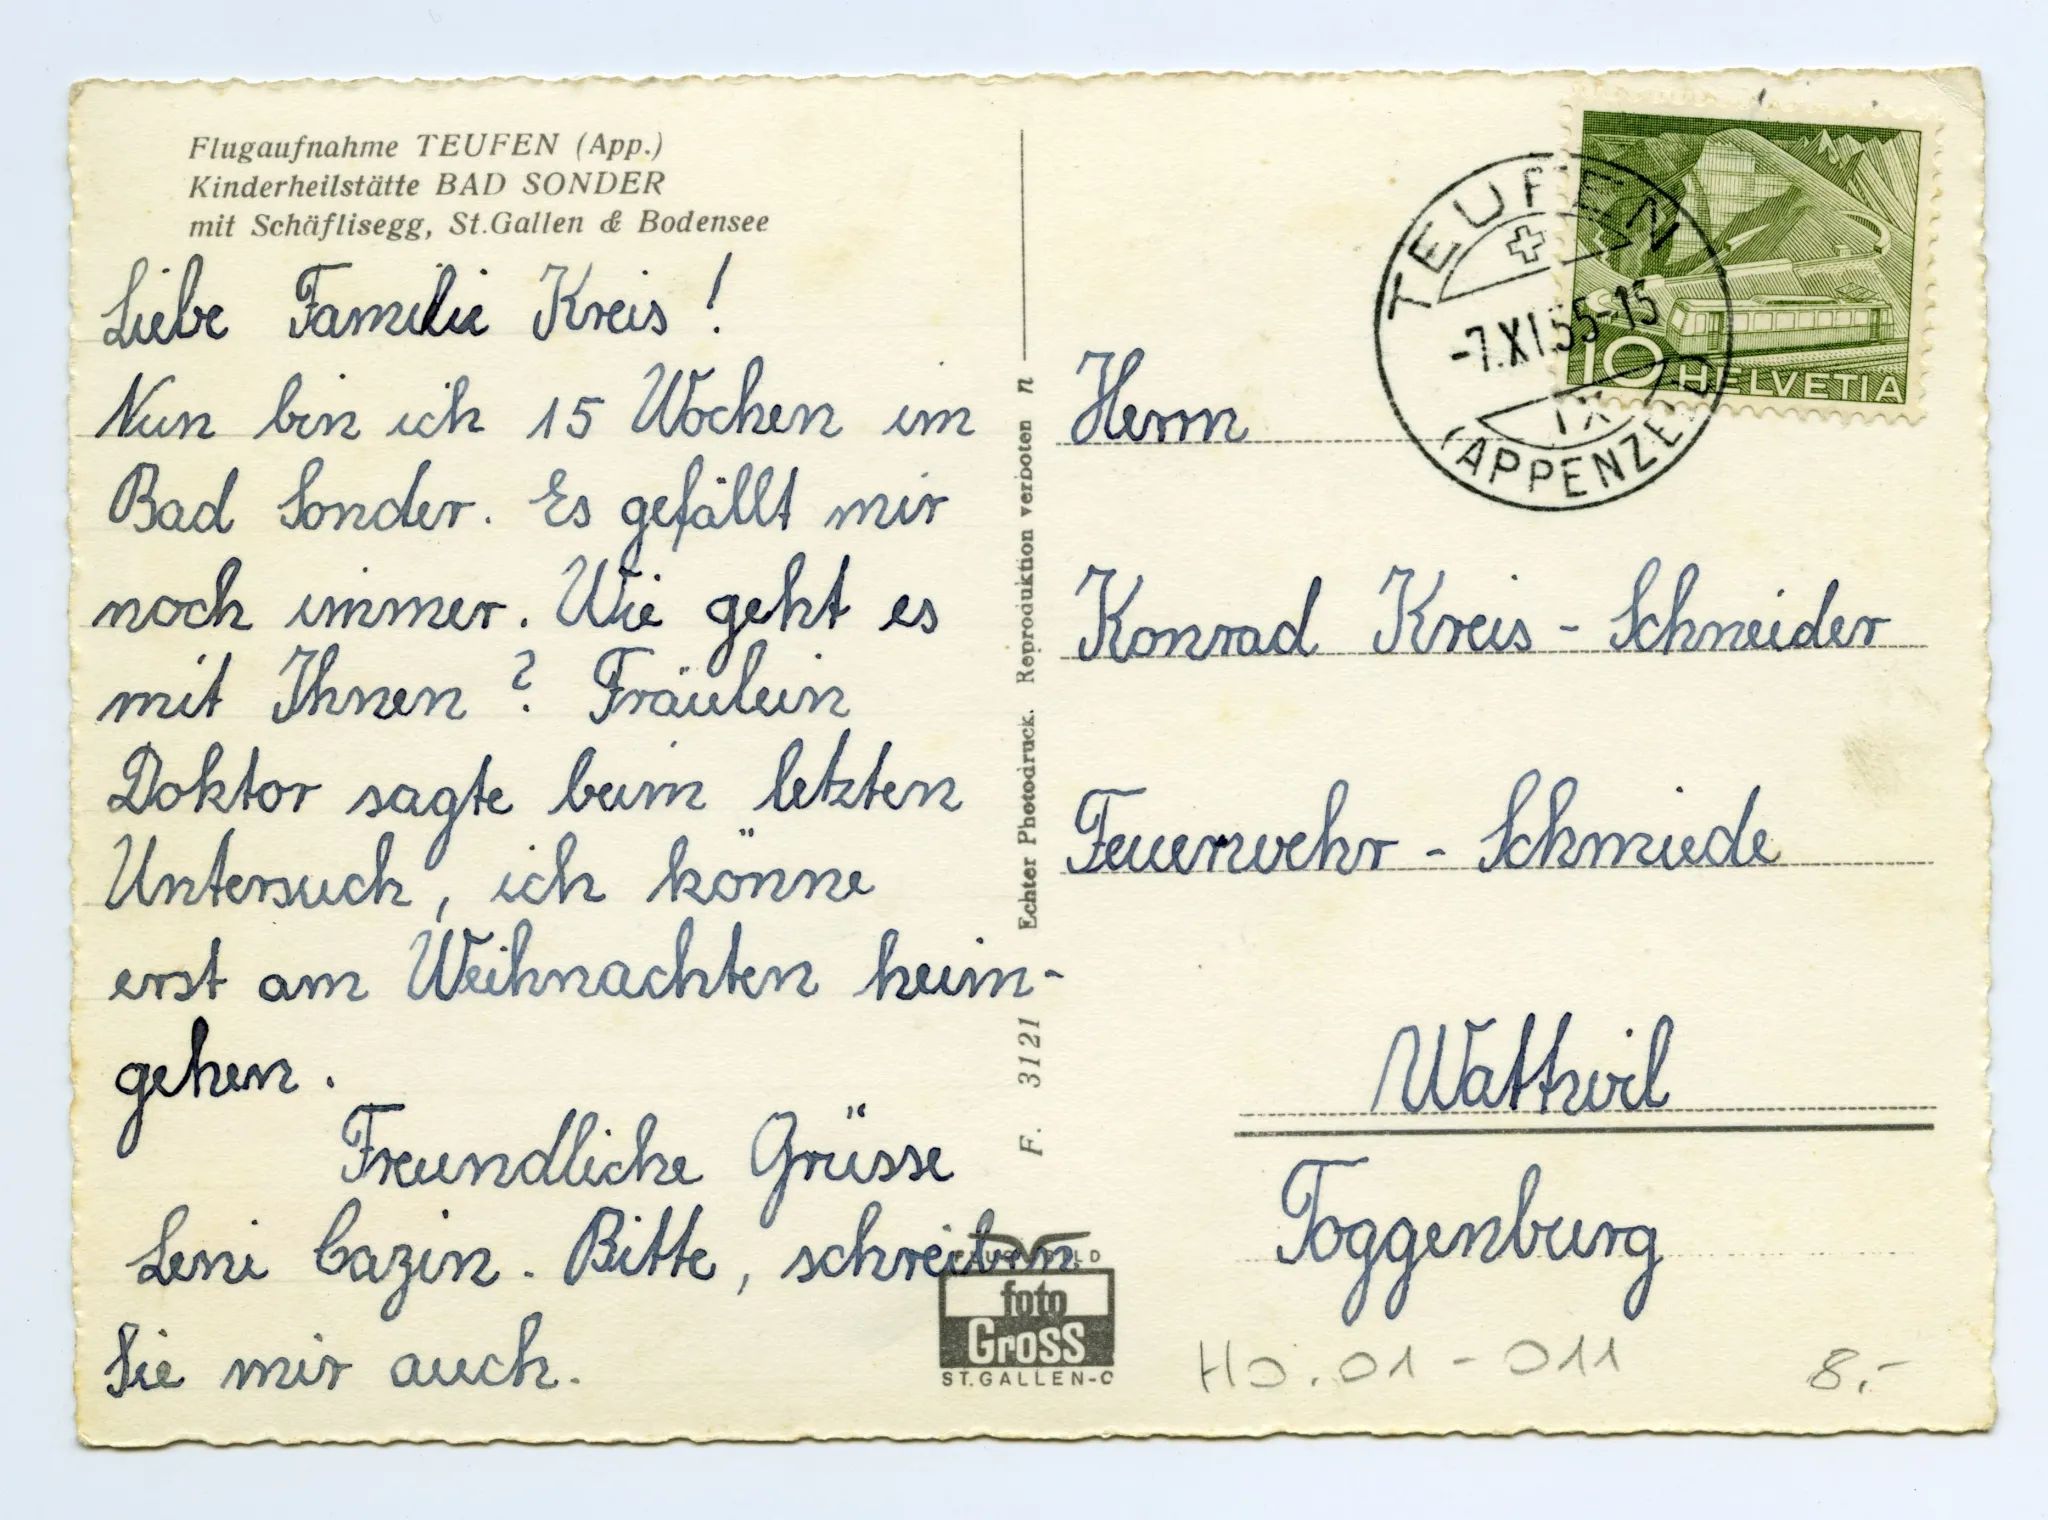 Flugaufnahme TEUFEN (App.)
Kinderheilstätte BAD SONDER
mit Schäflisegg, St.Gallen & Bodensee
Liebe Familie Kreis!
Nun bin ich 15 Wochen im
Bad Sonder. Es gefällt mir
noch immer. Wie geht es
mit Ihnen? Fräulein
Doktor sagte beim letzten
Untersuch, ich könne
erst am Weihnachten heim-
gehen.
Freundliche Grüsse
Leni Cazin. Bitte, schreiben
Sie mir auch.
F. 3121 Echter Photodruck. Reproduktion verboten n
foto
Gross
ST.GALLEN-O
TEUFEN
-7.XI.55-15
IX
(APPENZELL)
10 HELVETIA
Herrn
Konrad Kreis - Schneider
Feuerwehr - Schmiede
Wattwil
Toggenburg
HO.01-011 8.-